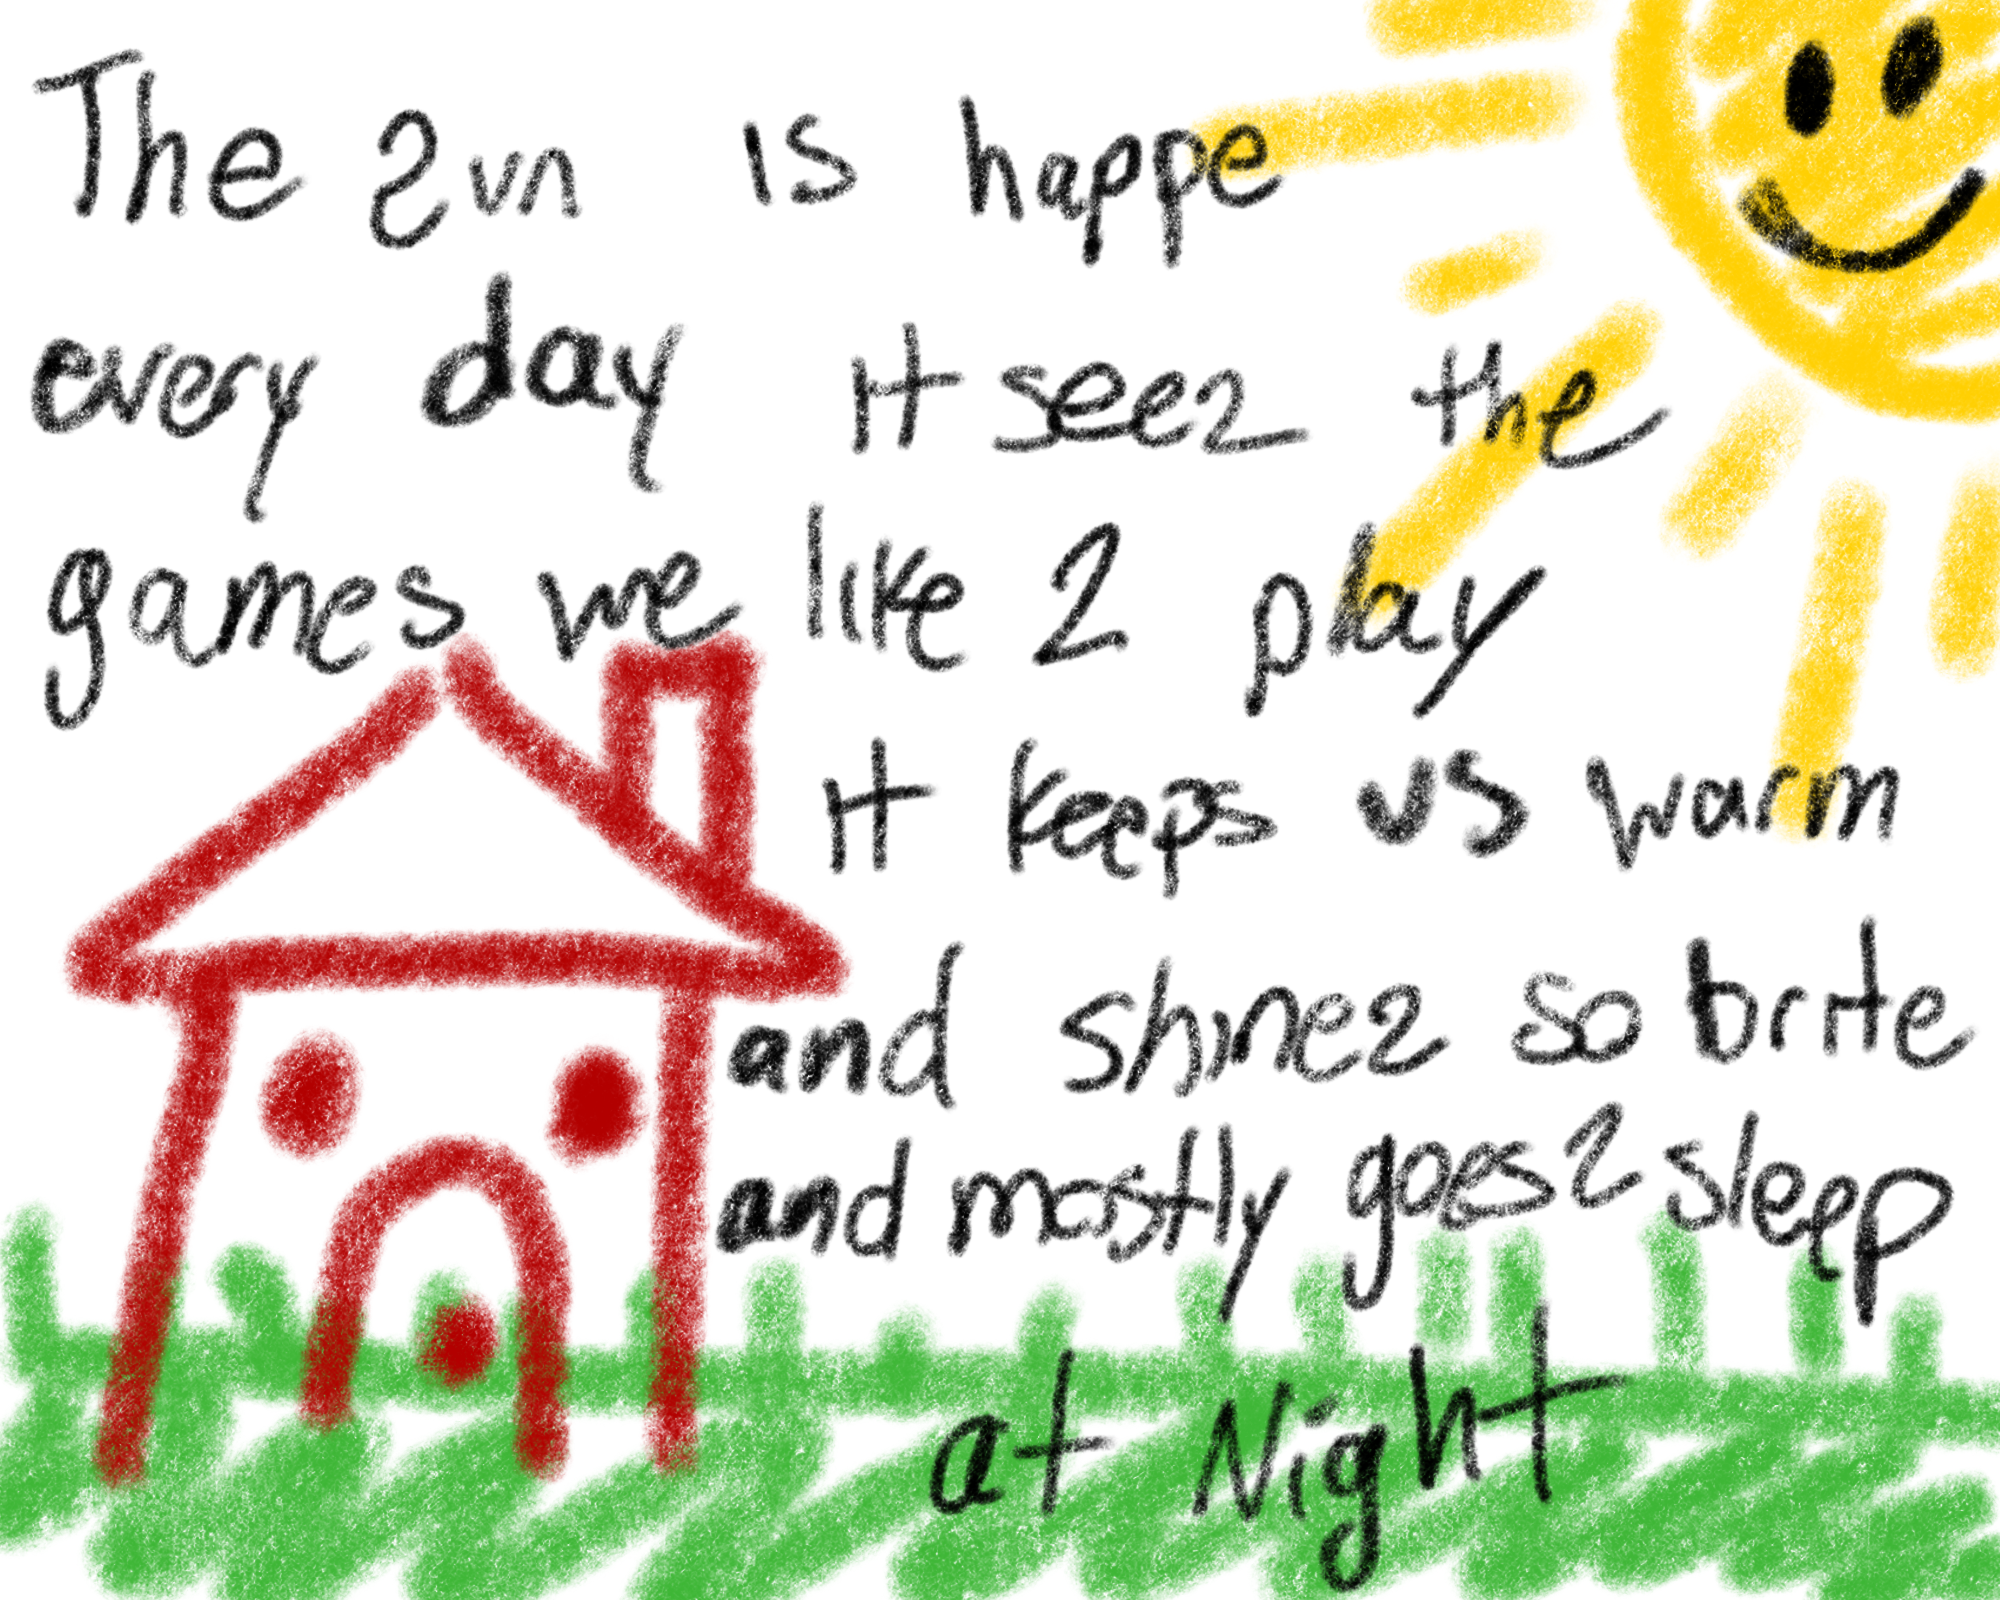 The 2un is happe
every day it see2 the
games we like 2 play
it keeps us warm
and shine2 so brite
and mostly goes 2 sleep
at Night